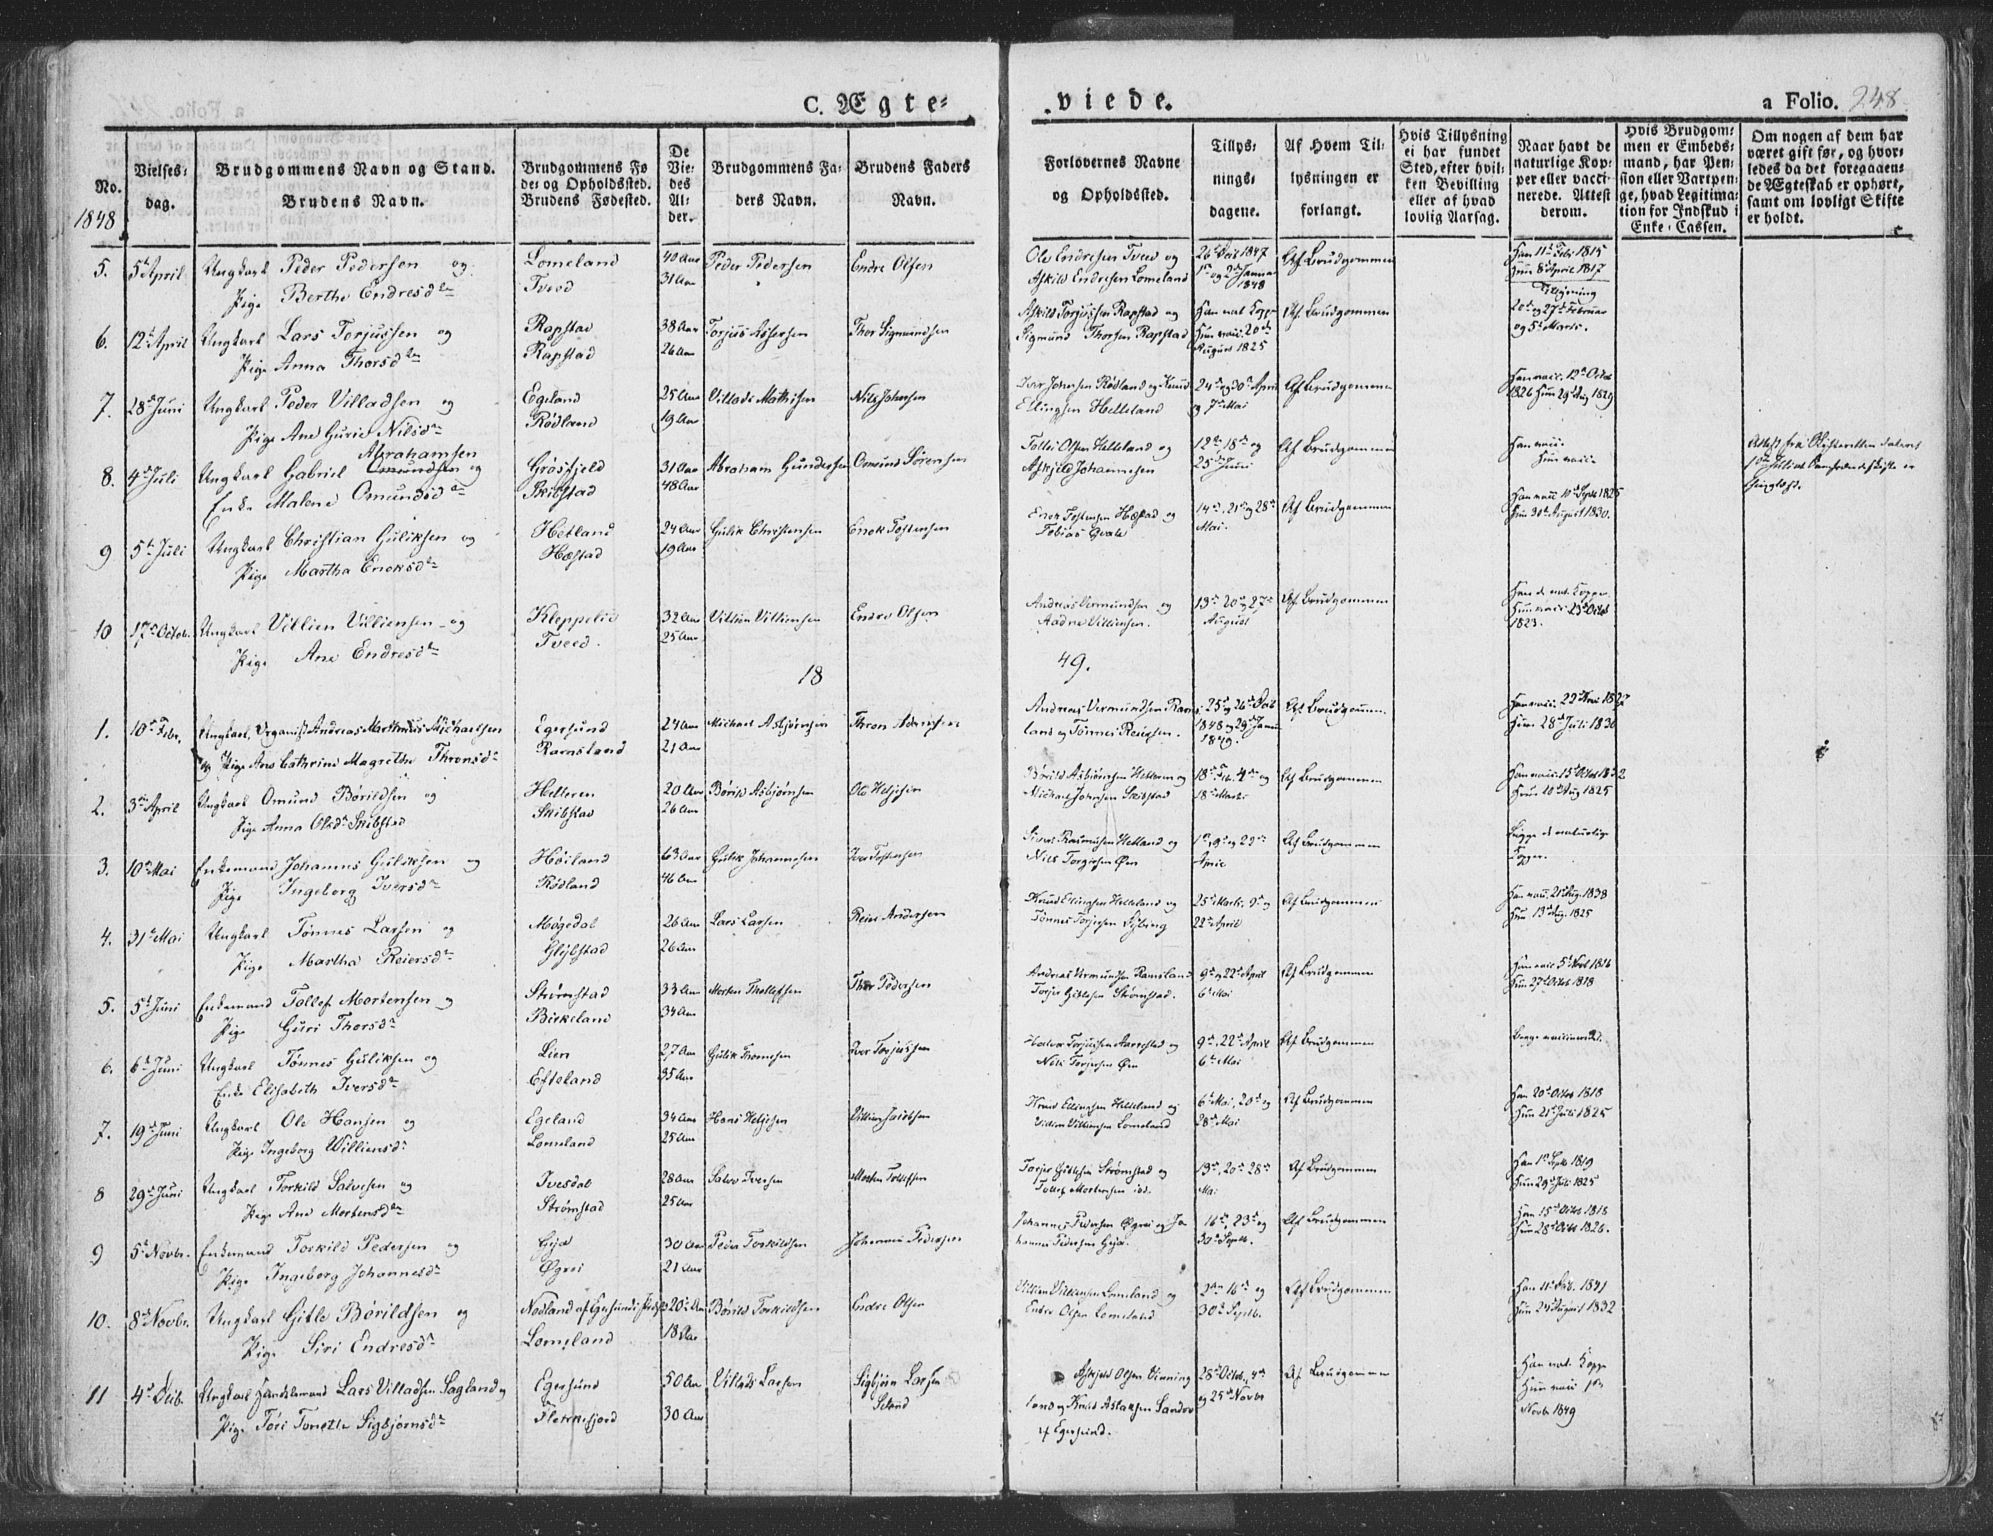 C. Ægte=
viede.
a Folio. 248
No.
1848
Vielses=
dag.
Brudgommens Navn og Stand.
Brudens Navn.
Brudgommens Fø
de= og Opholdssted.
Brudens Fødested.
De
Vie=
des
Al=
der.
Brudgommens Fa=
ders Navn.
Brudens Faders
Navn.
Forlovernes Navne
og Opholdssted.
Tillys=
nings=
dagene.
Af Hvem Til=
lysningen er
forlangt.
Hvis Tillysning
ei har fundet
Sted, efter hvil=
ken Bevilling
eller af hvad
lovlig Aarsag.
Naar havt de
naturlige Kop=
per eller vacci=
nerede. Attest
derom.
Hvis Brudgom=
men er Embeds=
mand, har Pen=
sion eller Vartpen=
ge, hvad Legitima=
tion for Indskud i
Enke=Cassen.
Om nogen af dem har
været gift før, og hvor=
ledes da det foregaaen=
de Ægteskab er ophørt,
samt om lovligt Skifte
er holdt.
5. 5te April Ungkarl Peder Pedersen og Lomeland 40 Aar Peder Pedersen Endre Olsen Ole Endresen Tveed og 26de Decb 1847 Af Brudgommen Han 11te Febr 1815
Pige Berthe Endresdtr Tveed 31 Aar Askild Endresen Lomeland 1ste og 2den Januar 1848 Hun 8de April 1817
6. 12te April Ungkarl Lars Torjussen og Rapstad 38 Aar Torjus Thor Sigmundsen Askild Torjussen Rapstad og Han nat. Kopper Af Brudgommen Tillysning 20de og 27de Februar
Pige Anna Thorsdtr Rapstad 26 Aar Sigmund Thorsen Rapstad Hun vacc. 20de August 1825 og 5te Marts.
7. 28de Juni Ungkarl Peder Villadsen og Egeland 25 Aar Villads Mathisen Nils Johnsen Iver Johnsen Rødland og Knud 24de og 30te April Af Brudgommen Han vacc. 12te Octob
Pige Ane Gurie Nilsdtr Rødland 19 Aar Ellingsen Helleland og 7de Mai 1826 Hun 29de Aug 1829
Abrahamsen
8. 4de Juli Ungkarl Gabriel Omundsen og Grøsfjeld 31 Aar Abraham Gundersen Omund Sørensen Tollei Olsen Helleland og 12te, 18de og Af Brudgommen Han vacc.
Enke Malene Omundsdtr Skibstad 48 Aar Askjeld Johannesen 25de Juni Hun vacc.
Attest fra Skifteretten dateret
9 5te Juli Ungkarl Christian Guliksen og Hetland 24 Aar Gulik Christensen Enok Tostensen Enok Tostensen Hæstad og 14de, 21de og 28de Af Brudgommen Han vacc 10de Septb 1825
Pige Martha Enoksdtr Hæstad 19 Aar Tobias Qvale Mai. Hun 30te August 1830.
10 17de Octob. Ungkarl Villien Villiensen og Kleppelid 32 Aar Villien Villiensen Endre Olsen Andreas Vermundsen og 13de 20de og 27de Af Brudgommen Han de nat. Kopper
Pige Ane Endresdtr Tveed. 25 Aar Aadne Villiensen. August Hun vacc. 23de Octob 1823.
18 49.
1. 10de Febr. Ungkarl, Organist Andreas Marthinius Michaelsen Egersund 24 Aar Michael Asbjørnsen Thron Andreas Vermundsen Rams 25de og 26de Decb Af Brudgommen Han vacc. 29de Mai
og Pige Ane Cathrine Magrethe Thronsdtr Ramsland 21 Aar land og Tønnes Reiersen. 1848 og 29de Januar 1849. Hun 28de Juli 1830
2. 3die April Ungkarl Omund Børildsen og Helleren 20 Aar Børild Asbjørnsen Ole Helgesen Børild Asbjørnsen Helleren og 18de Feb. 4de og Af Brudgommen Han vacc. 15de Octob 1832
Pige Anna Olsdtr Skibstad Skibstad 26 Aar Michael Johnsen Skibstad 18de Marts Hun 10de Aug 1825
3. 10de Mai Enkemand Johannes Guliksen og Høiland 63 Aar Gulik Johannesen Iver Tostensen Sivert Rasmusen Hetland og 1ste, 9de og 22de Af Brudgommen Begge de naturlige
Pige Ingeborg Iversdtr Rødland 46 Aar Nils Torgersen Øen April Kopper.
4. 31te Mai Ungkarl Tønnes Larsen og Møgedal 26 Aar Lars Larsen Reier Andersen Knud Ellingsen Helleland og 25de Marts, 9de og Af Brudgommen Han vacc. 21de Aug. 1838
Pige Martha Reiersdtr Gløbstad 26 Aar Tønnes Torjersen 22de April Hun 13de Aug. 1825
5. 5te Juni Enkemand Tollef Mortensen og Strømstad 33 Aar Morten Thollefsen Thor Pedersen Andreas Vermundsen Ramsland 9de og 22de April Af Brudgommen Han vacc 5te Novb 1816
Pige Guri Thorsdtr Birkeland 34 Aar Torjer Gitlesen Strømstad. 6te Mai Hun 27de Octob 1818
6. 6te Juni Ungkarl Tønnes Guliksen og Lien 27 Aar Gulik Thomesen Iver Torjussen Torjussen Aarrestad og 9de, 22de April Af Brudgommen Begge vaccinered.
Enke Elisabeth Iversdtr Efteland 35 Aar Nils Torjersen Øen 6te Mai
7. 19de Juni Ungkarl Ole Hansen og Egeland 34 Aar Hans Helgesen Villien Jacobsen Knud Ellingsen Helleland og 6te Mai, 20de og Af Brudgommen Han 20de Octob 1818
Pige Ingeborg Williensdtr Lomeland 25 Aar Villien Villiensen Lomeland 28de Mai Hun 21de Juli 1825
8 29de Juni Ungkarl Torkild Salvesen og Ivesdal 28 Aar Salve Iversen Morten Tollefsen Torjer Gitlesen Strømstad og 13de, 20de 28de Af Brudgommen Han 1ste Septb 1819
Pige Ane Mortensdtr Strømstad 25 Aar Tollef Mortensen ibd. Mai Hun 29de Juli 1825
9 5te Novbr. Enkemand Torkild Pedersen og Gya 30 Aar Peder Torkildsen Johannes Pedersen Johannes Pedersen Øgrei og Jo 16de, 23de og Af Brudgommen Han 15de Octob 1818
Pige Ingeborg Johannesdtr Øgrei 21 Aar hannes Pedersen Gya. 30te Septb. Hun 28de Octb 1826.
10. 8de Novbr. Ungkarl Gitle Børildsen og Nodland af Egersunds 20 Aar Børild Torkildsen Endre Olsen Villien Villiensen Lomeland og 2den 16de og Af Brudgommen Han 11te Feb. 1841
Pige Siri Endresdtr Lomeland 18 Aar Endre Olsen Lomeland 30te Septb. Hun 24 August 1832
11 4de Decb. Ungkarl Handelsmand Lars Villadsen Sagland og Egersund 50 Aar Villads Larsen Sigbjørn Larsen Askjeld Olsen Vinning 28de Octob., 4de Af Brudgommen Han nat. Kopper
Pige Tori Tonette Sigbjørnsdtr Flekkefjord 30 Aar Seland land og Knud Aslaksen og 25de Novbr Hun vacc 1ste
af Egersund. Novbr 1849